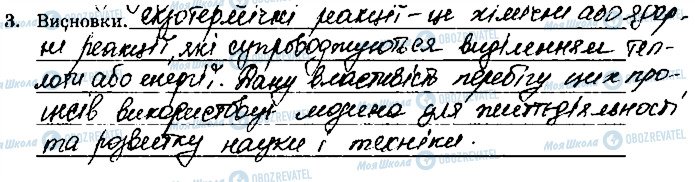 3. Висновки. екзотермічні реакції - це хімічні або ядер-
ні реакції, які супроводжуються виділенням теп-
лоти або енергії. Дану властивість перебігу цих про-
цесів використовці можна для життєдіяльності
та розвитку науки і техніки.